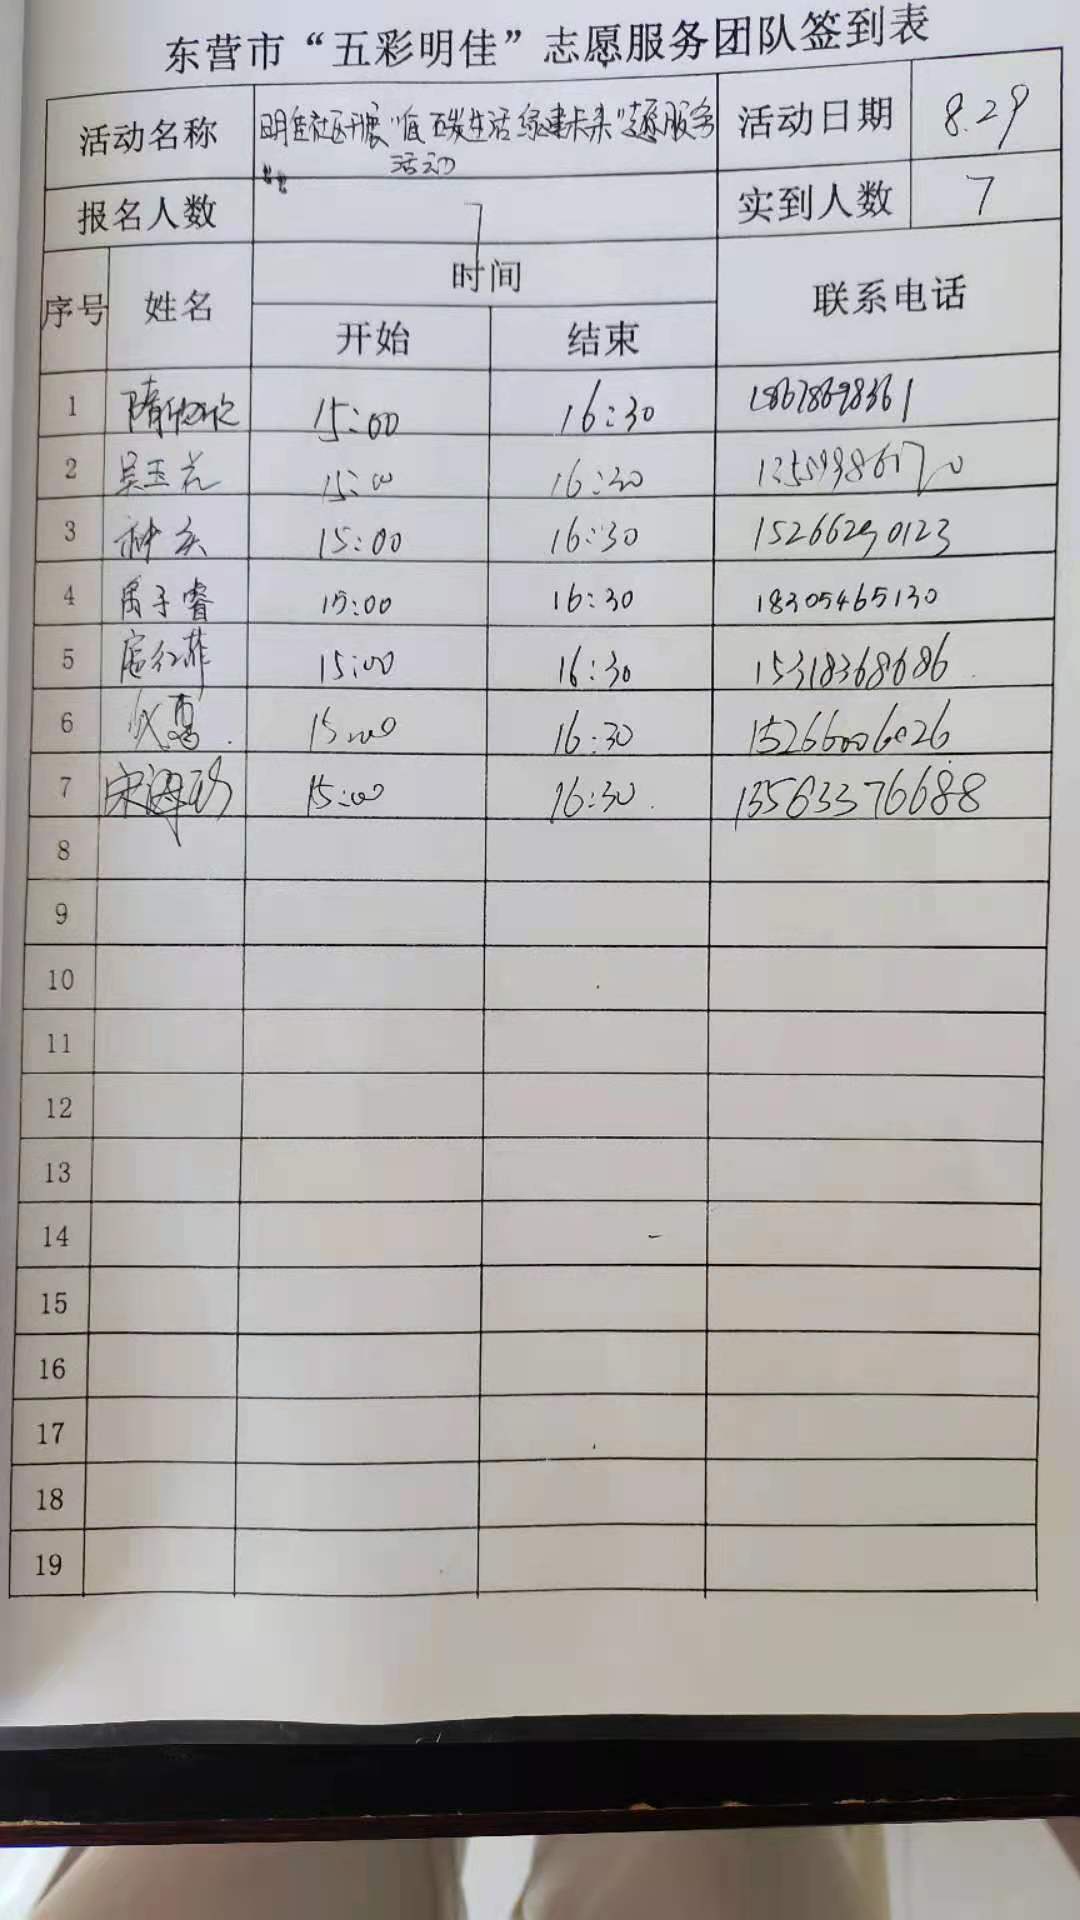 东营市“五彩明佳”志愿服务团队签到表
活动名称 明佳社区开展“低碳生活 绿建未来”志愿服务活动 活动日期 8.29
报名人数 7 实到人数 7
序号 姓名 时间 联系电话
开始 结束
1 15:00 16:30 18678698361
2 吴玉光 15:00 16:30
3 种云 15:00 16:30 15266290123
4 周子睿 15:00 16:30 18305465130
5 15:00 16:30 15318368686
6 15:00 16:30 15266006026
7 宋海珍 15:00 16:30 13563376688
8
9
10
11
12
13
14
15
16
17
18
19